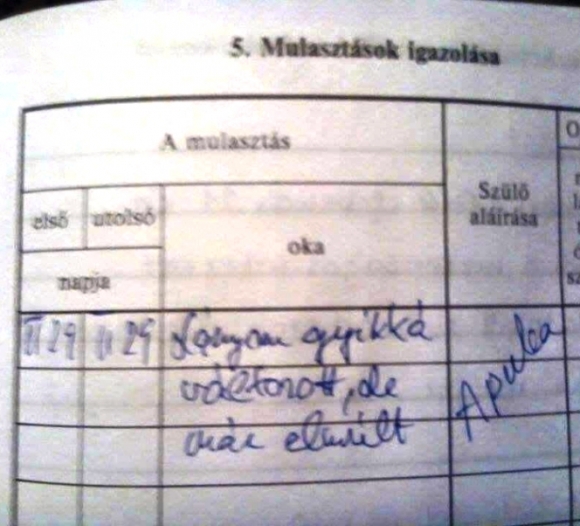 5. Mulasztások igazolása
A mulasztás
Szülő
aláírása
első
utolsó
oka
napja
II 29
II 29
Lányom gyíkká
változott, de
már elmúlt
Apuka